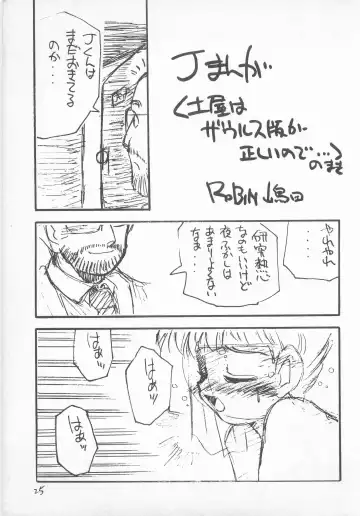 Jまんが
〈土屋は
ザウルス版が
正しいので…〉
のまき
ROBIN 嶋田
Jくんは
まだおきてる
のか・・・
やれやれ
研究熱心
なのもいいけど
夜ふかしは
あまりよくない
なぁ・・
はぁッ
はぁッ
はぁッ
25